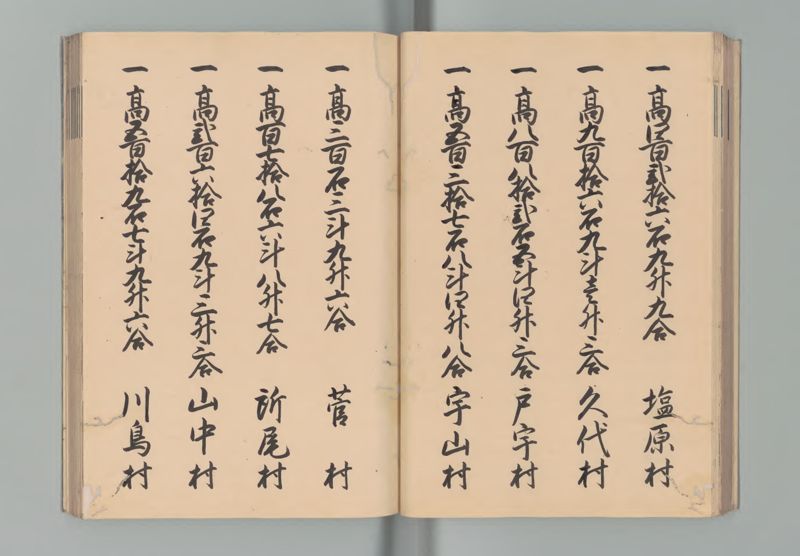 一 高四百弐拾六石九升九合 塩原村
一 高九百拾六石九斗壱升三合 久代村
一 高八百八拾弐石五斗四升三合 戸宇村
一 高五百三拾七石八斗四升八合 宇山村
一 高三百石三斗九升六合 菅村
一 高百七拾八石六斗八升七合 所尾村
一 高弐百六拾四石九斗三升三合 山中村
一 高五百拾九石七斗九升六合 川鳥村